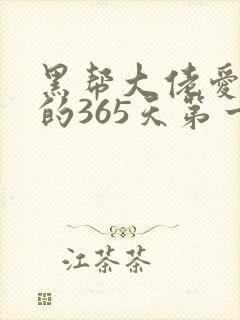 黑帮大佬爱
的365天第一
江茶茶